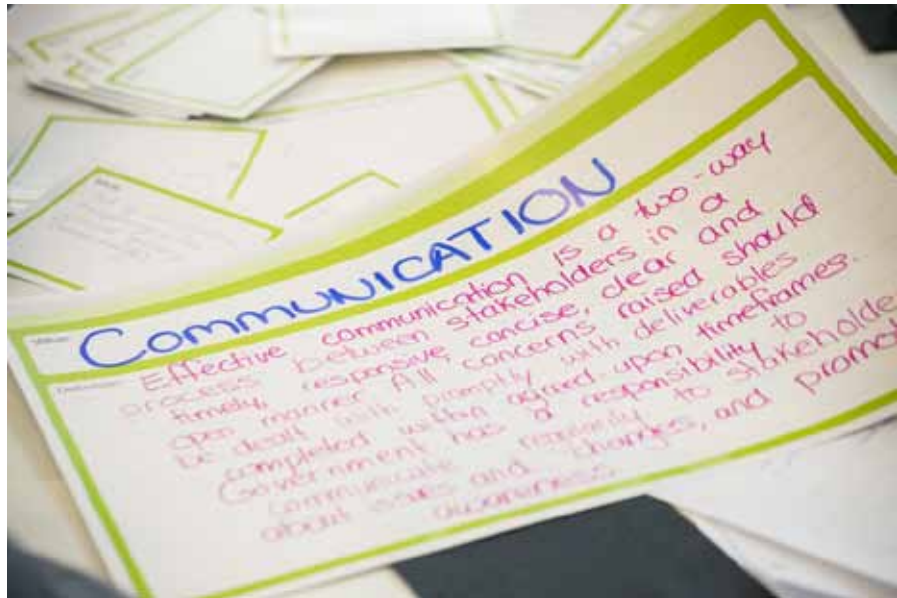 Value:
COMMUNICATION
Definition:
Effective communication is a two-way
process between stakeholders in a
timely, responsive, concise, clear and
open manner. All concerns raised should
be dealt with promptly with deliverables
completed within agreed upon timeframes.
Government has a responsibility to
communicate regularly to stakeholde
about issues and changes, and promot
awareness